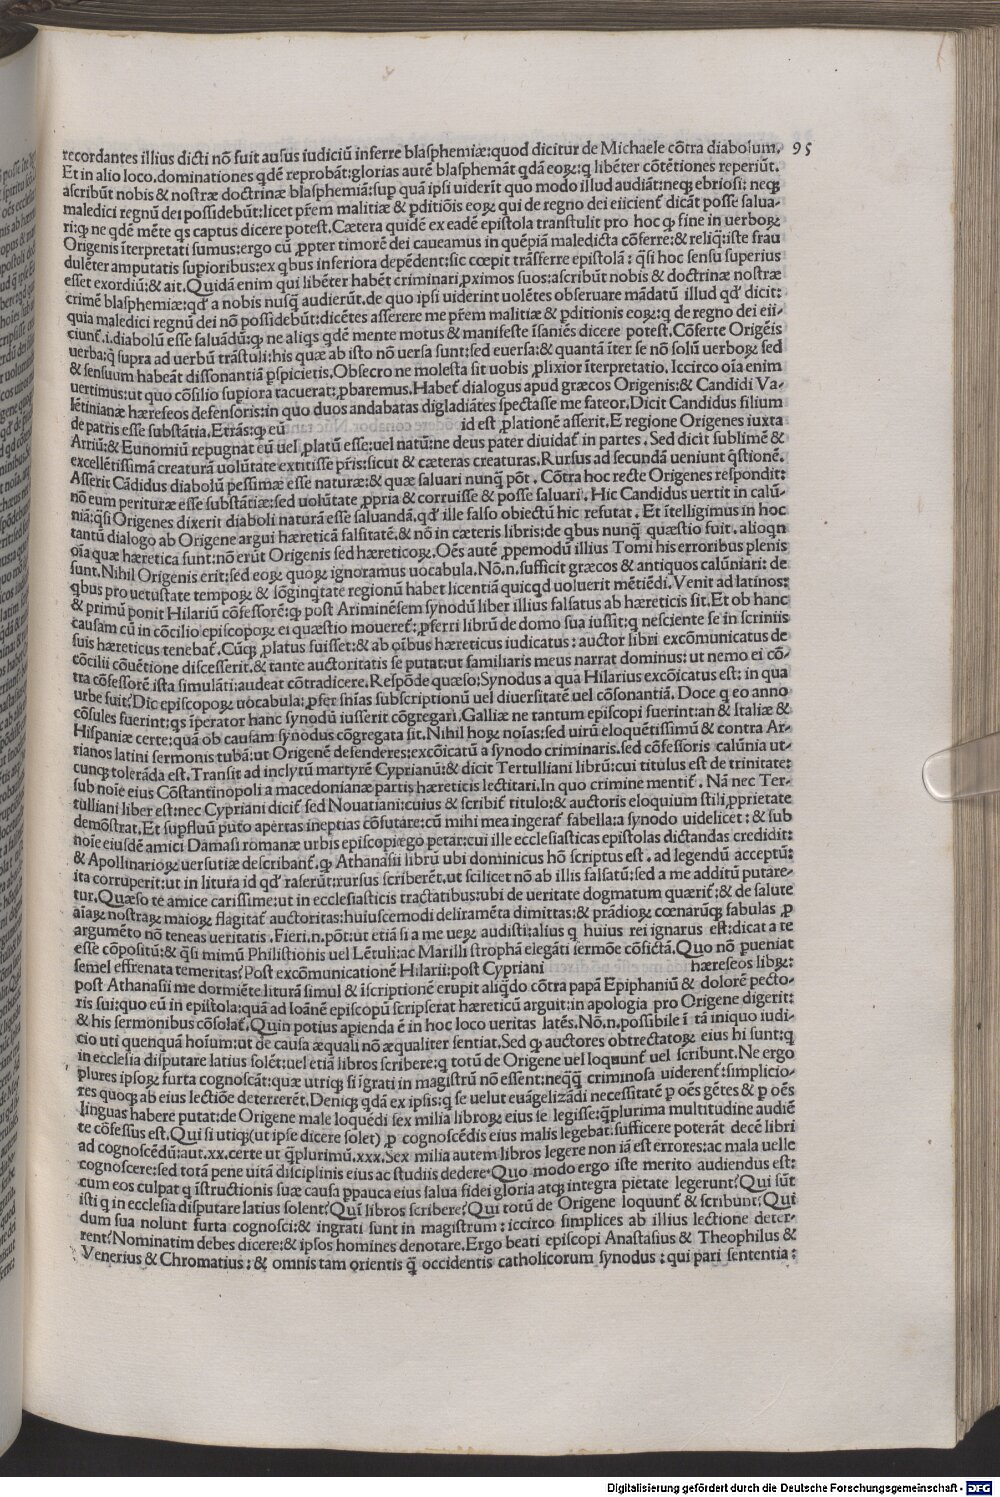 recordantes illius dicti nõ fuit ausus iudiciũ inferre blasphemiæ:quod dicitur de Michaele cõtra diabolum. 95
Et in alio loco.dominationes qdẽ reprobãt:glorias autẽ blasphemãt qdã eoꝝ:q libẽter cõtẽtiones reperiũt.
ascribũt nobis & nostræ doctrinæ blasphemiã:sup quã ipsi uiderĩt quo modo illud audiãt:neqꝫ ebriosi: neqꝫ
maledici regnũ dei possidebũt:licet prẽm malitiæ & pditiõis eoꝝ qui de regno dei eiicient̃ dicãt posse salua-
ri:ꝙ ne qdẽ mẽte qs captus dicere potest.Cætera quidẽ ex eadẽ epistola transtulit pro hoc ꝙ fine in uerboꝝ
Origenis ĩterpretati sumus:ergo cũ ꝓpter timorẽ dei caueamus in quẽpiã maledicta cõferre:& reliq:iste frau
dulẽter amputatis supioribus:ex qbus inferiora depẽdent:sic cœpit trãsferre epistolã: q̃si hoc sensu superius
esset exordiũ:& ait.Quidã enim qui libẽter habẽt criminari ꝓximos suos:ascribũt nobis & doctrinæ nostræ
crimẽ blasphemiæ:qd̕ a nobis nusq̃ audierũt.de quo ipsi uiderint uolẽtes obseruare mãdatũ illud qd̕ dicit:
quia maledici regnũ dei nõ possidebũt:dicẽtes asserere me prẽm malitiæ & pditionis eoꝝ:q de regno dei eii-
ciunt̃.i.diabolũ esse saluãdũ:ꝙ ne aliqs qdẽ mente motus & manifeste ĩsaniẽs dicere potest.Cõferte Origẽis
uerba:q̃ supra ad uerbũ trãstuli:his quæ ab isto nõ uersa sunt:sed euersa:& quantã ĩter se nõ solũ uerboꝝ sed
& sensuum habeãt dissonantiã pspicietis.Obsecro ne molesta sit uobis ꝓlixior ĩterpretatio.Iccirco oĩa enim
uertimus:ut quo cõsilio supiora tacuerat:ꝓbaremus.Habet̃ dialogus apud græcos Origenis:& Candidi Va-
lẽtinianæ hæreseos defensoris:in quo duos andabatas digladiãtes spectasse me fateor.Dicit Candidus filium
de patris esse substãtia.Etrãs:ꝙ eũ id est ꝓlationẽ asserit.E regione Origenes iuxta
Arriũ:& Eunomiũ repugnat eũ uel ꝓlatũ esse:uel natũ:ne deus pater diuidat̃ in partes . Sed dicit sublimẽ &
excellẽtissimã creaturã uolũtate extitisse pr̃is:sicut & cæteras creaturas.Rursus ad secundã ueniunt q̃stionẽ.
Asserit Cãdidus diabolũ pessimæ esse naturæ:& quæ saluari nunq̃ põt . Cõtra hoc recte Origenes respondit:
nõ eum perituræ esse substãtiæ:sed uolũtate ꝓpria & corruisse & posse saluari . Hic Candidus uertit in calũ-
niã:q̃si Origenes dixerit diaboli naturã esse saluandã.qd̕ ille falso obiectũ hic refutat . Et ĩtelligimus in hoc
tantũ dialogo ab Origene argui hæreticã falsitatẽ.& nõ in cæteris libris:de qbus nunq̃ quæstio fuit . alioqn
oĩa quæ hæretica sunt:nõ erũt Origenis sed hæreticoꝝ.Oẽs autẽ ꝓpemodũ illius Tomi his erroribus plenis
sunt.Nihil Origenis erit:sed eoꝝ quoꝝ ignoramus uocabula.Nõ.n.sufficit græcos & antiquos calũniari: de
qbus pro uetustate tempoꝝ & lõginq̃tate regionũ habet licentiã quicqd uoluerit mẽtiẽdi.Venit ad latinos:
& primũ ponit Hilariũ cõfessorẽ:ꝙ post Ariminẽsem synodũ liber illius falsatus ab hæreticis sit.Et ob hanc
causam cũ in cõcilio episcopoꝝ ei quæstio moueret̃:ꝓferri librũ de domo sua iussit:q nesciente se in scriniis
suis hæreticus tenebat̃.Cũqꝫ ꝓlatus fuisset:& ab oĩbus hæreticus iudicatus: auctor libri excõmunicatus de
cõcilii cõuẽtione discesserit.& tante auctoritatis se putat:ut familiaris meus narrat dominus: ut nemo ei cõ-
tra cõfessorẽ ista simulãti:audeat cõtradicere.Respõde quæso:Synodus a qua Hilarius excõicatus est: in qua
urbe fuit?Dic episcopoꝝ uocabula:ꝓfer sñias subscriptionũ uel diuersitatẽ uel cõsonantiã. Doce q eo anno
cõsules fuerint:qs ĩperator hanc synodũ iusserit cõgregari.Galliæ ne tantum episcopi fuerint:an & Italiæ &
Hispaniæ certe:quã ob causam synodus cõgregata sit.Nihil hoꝝ noĩas:sed uirũ eloquẽtissimũ & contra Ar-
rianos latini sermonis tubã:ut Origenẽ defenderes:excõicatũ a synodo criminaris.sed cõfessoris calũnia ut-
cunqꝫ tolerãda est.Transit ad inclytũ martyrẽ Cyprianũ:& dicit Tertulliani librũ:cui titulus est de trinitate:
sub noĩe eius Cõstantinopoli a macedonianæ partis hæreticis lectitari.In quo crimine mentit̃ . Nã nec Ter-
tulliani liber est:nec Cypriani dicit̃ sed Nouatiani:cuius & scribit̃ titulo:& auctoris eloquium stili ꝓprietate
demõstrat.Et supfluũ puto apertas ineptias cõfutare:cũ mihi mea ingerat̃ fabella:a synodo uidelicet : & sub
noĩe eiusdẽ amici Damasi romanæ urbis episcopi ego petar:cui ille ecclesiasticas epistolas dictandas credidit:
& Apollinarioꝝ uersutiæ describant̃.ꝙ Athanasii librũ ubi dominicus hõ scriptus est . ad legendũ acceptũ:
ita corruperit:ut in litura id qd̕ raserũt:rursus scriberẽt.ut scilicet nõ ab illis falsatũ:sed a me additũ putare-
tur.Quæso te amice carissime:ut in ecclesiasticis tractatibus:ubi de ueritate dogmatum quærit̃:& de salute
aĩaꝝ nostraꝝ maioꝝ flagitat̃ auctoritas:huiuscemodi deliramẽta dimittas:& prãdioꝝ cœnarũqꝫ fabulas ꝓ
argumẽto nõ teneas ueritatis .Fieri.n.põt:ut etiã si a me ueꝝ audisti:alius q huius rei ignarus est:dicat a te
esse cõpositũ:& q̃si mimũ Philistionis uel Lẽtuli:ac Marilli strophã elegãti sermõe cõfictã.Quo nõ pueniat
semel effrenata temeritas?Post excõmunicationẽ Hilarii:post Cypriani hæreseos libꝝ:
post Athanasii me dormiẽte liturã simul & ĩscriptionẽ erupit aliq̃do cõtra papã Epiphaniũ & dolorẽ pecto-
ris sui:quo eũ in epistola:quã ad Ioãnẽ episcopũ scripserat hæreticũ arguit:in apologia pro Origene digerit:
& his sermonibus cõsolat̃.Quin potius apienda ẽ in hoc loco ueritas latẽs.Nõ.n.possibile ĩ tã iniquo iudi-
cio uti quenquã hoĩum:ut de causa æquali nõ æqualiter sentiat.Sed ꝙ auctores obtrectatoꝝ eius hi sunt:q
in ecclesia disputare latius solẽt:uel etiã libros scribere:q totũ de Origene uel loqnunt̃ uel scribunt.Ne ergo
plures ipsoꝝ furta cognoscãt:quæ utriqꝫ si ĩgrati in magistrũ nõ essent:neq̃q̃ criminosa uiderent̃:simplicio-
res quoqꝫ ab eius lectiõe deterrerẽt.Deniqꝫ qdã ex ipsis:q se uelut euãgelizãdi necessitatẽ p oẽs gẽtes & p oẽs
linguas habere putat:de Origene male loquẽdi sex milia libroꝝ eius se legisse:q̃plurima multitudine audiẽ
te cõfessus est.Qui si utiqꝫ(ut ipse dicere solet) ꝓ cognoscẽdis eius malis legebat:sufficere poterãt decẽ libri
ad cognoscẽdũ:aut.xx.certe ut q̃plurimũ.xxx.Sex milia autem libros legere non iã est errores:ac mala uelle
cognoscere:sed totã pene uitã disciplinis eius ac studiis dedere.Quo modo ergo iste merito audiendus est:
cum eos culpat q ĩstructionis suæ causa ppauca eius salua fidei gloria atqꝫ integra pietate legerunt?Qui sũt
isti q in ecclesia disputare latius solent?Qui libros scribere?Qui totũ de Origene loquunt̃ & scribunt?Qui
dum sua nolunt furta cognosci:& ingrati sunt in magistrum:iccirco simplices ab illius lectione deter-
rent?Nominatim debes dicere:& ipsos homines denotare.Ergo beati episcopi Anastasius & Theophilus &
Venerius & Chromatius: & omnis tam orientis q̃ occidentis catholicorum synodus : qui pari sententia:
Digitalisierung gefördert durch die Deutsche Forschungsgemeinschaft - DFG